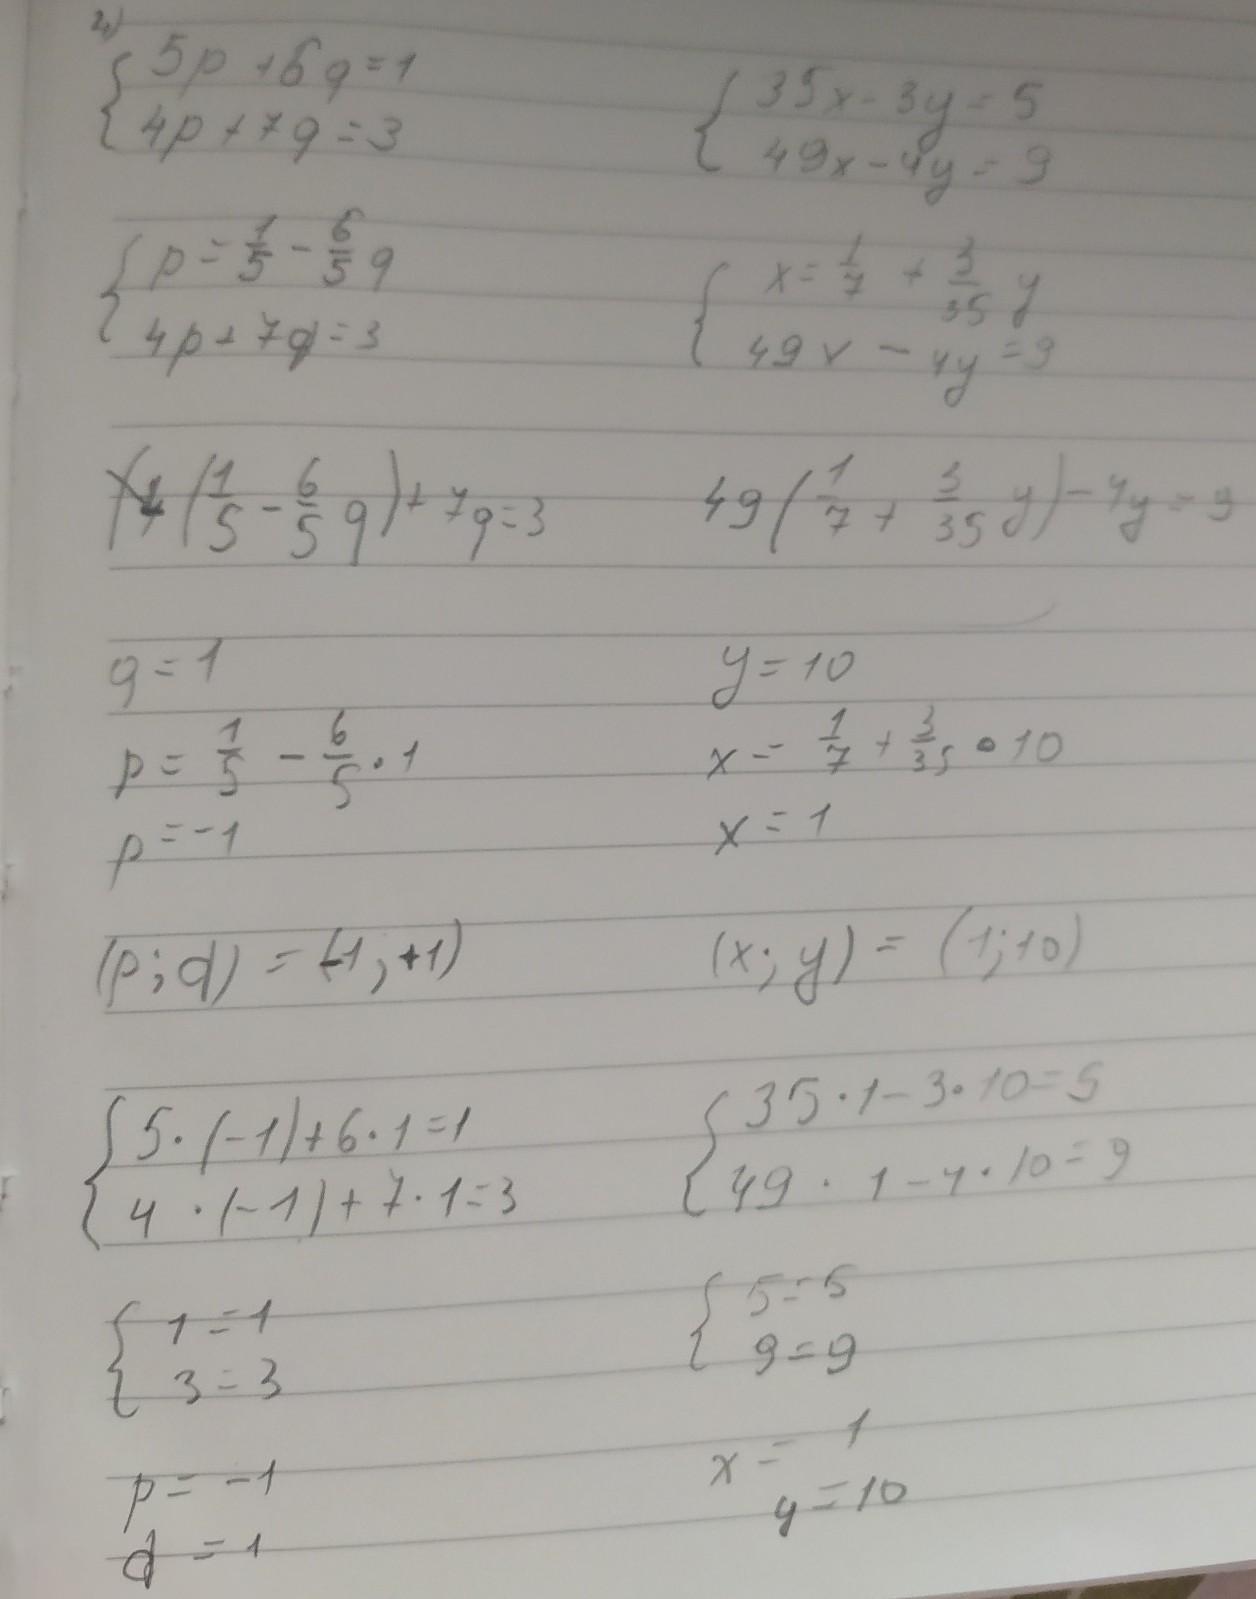 2)
5p + 6q = 1
4p + 7q = 3
p = 1/5 - 6/5 q
4p + 7q = 3
4(1/5 - 6/5 q) + 7q = 3
q = 1
p = 1/5 - 6/5 · 1
p = -1
(p; q) = (-1; +1)
5 · (-1) + 6 · 1 = 1
4 · (-1) + 7 · 1 = 3
1 = 1
3 = 3
p = -1
q = 1
35x - 3y = 5
49x - 4y = 9
x = 1/7 + 3/35 y
49x - 4y = 9
49(1/7 + 3/35 y) - 4y = 9
y = 10
x = 1/7 + 3/35 · 10
x = 1
(x; y) = (1; 10)
35 · 1 - 3 · 10 = 5
49 · 1 - 4 · 10 = 9
5 = 5
9 = 9
x = 1
y = 10